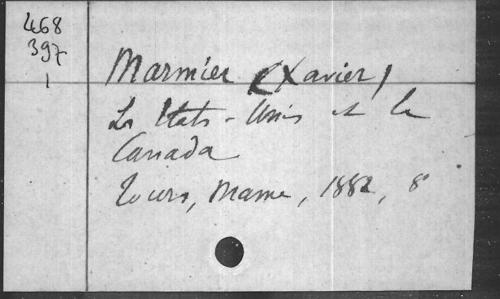 468
397
1
Marmier (Xavier)
Les Etats-Unis et le
Canada
Tours, Mame, 1882, 8°